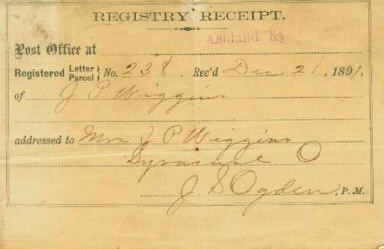 REGISTRY RECEIPT.
Post Office at Ashland, Ky
Registered Letter Parcel } No. 238 Rec'd Dec. 21, 1891.
of J P Wiggins
addressed to Mrs J P Wiggins
Syracuse O
J S Ogden P. M.